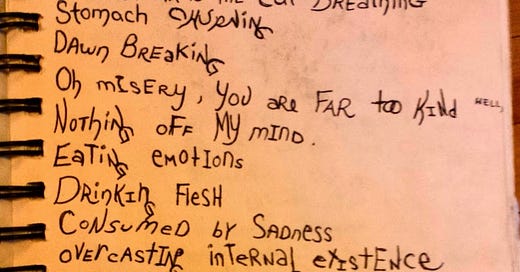 THE CAT BREATHING
Stomach CHURNING
DAWN BREAKING
Oh MISERY, YOU ARE FAR too KIND WELL,
NOTHING OFF MY MIND.
EATING EMOTIONS
DRINKING FLESH
CONSUMED BY SADNESS
OVERCASTING INTERNAL EXISTENCE